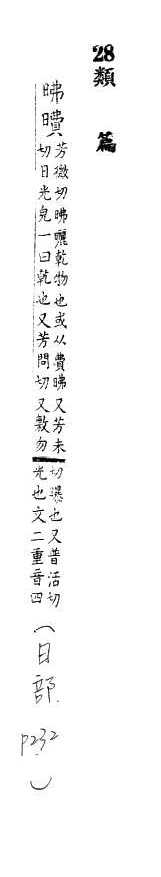 28類篇
昲㬥
芳微切昲曬乾物也或从費昲又芳未
切日光皃一曰乾也又芳問切又敷勿
切㬥也又普活切
光也文二重音四
(日部 P232)